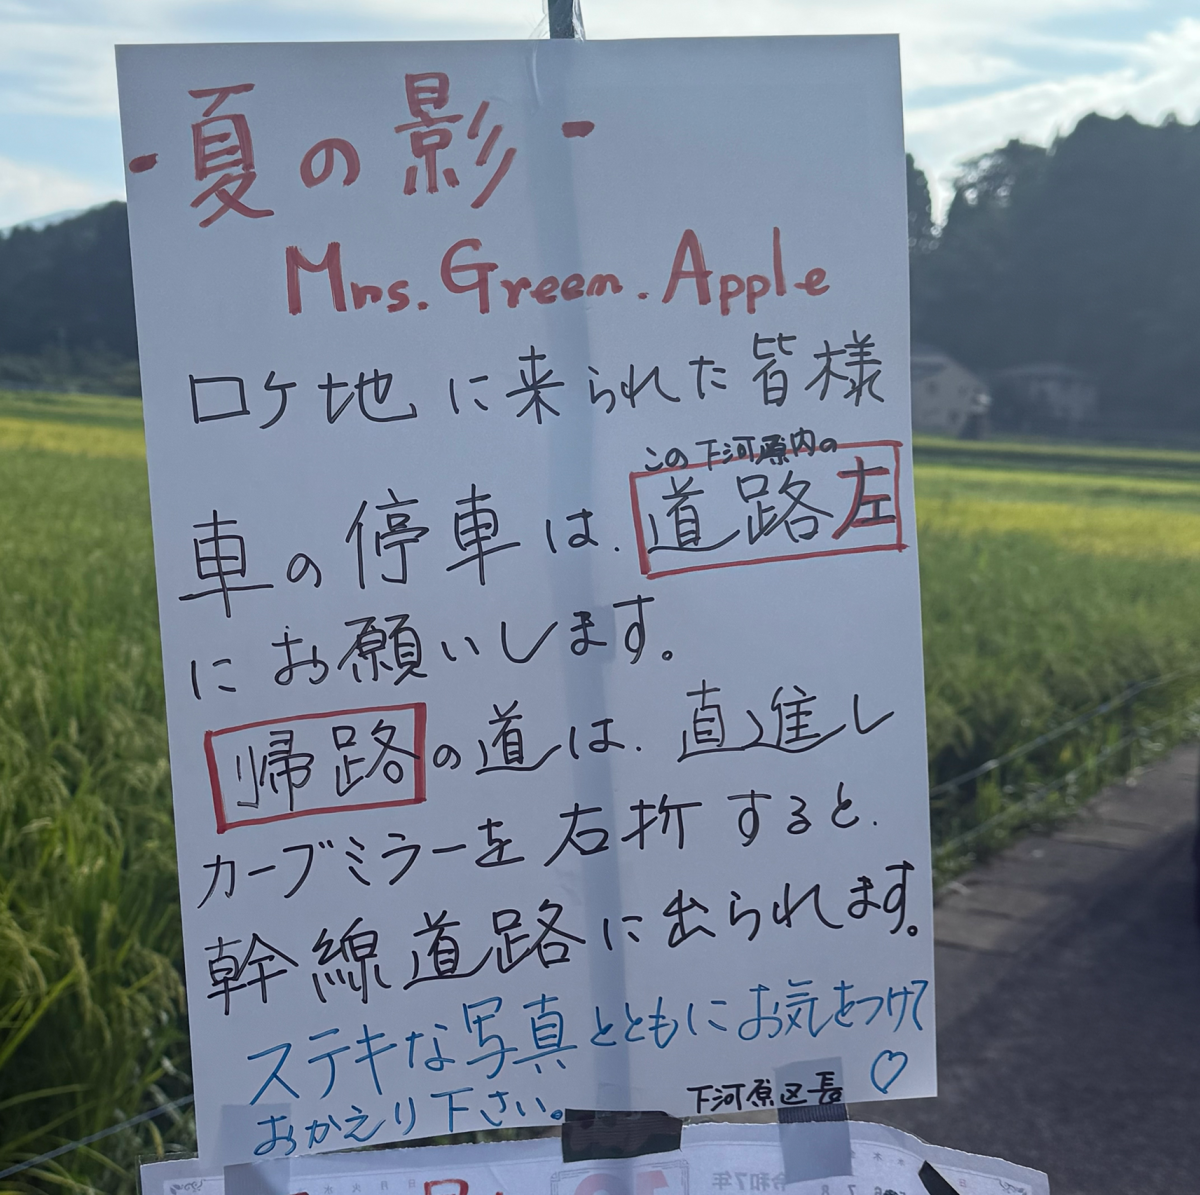 -夏の影-
Mrs.Green.Apple
ロケ地に来られた皆様
この下河原内の
車の停車は、道路左
にお願いします。
帰路の道は、直進し
カーブミラーを右折すると、
幹線道路に出られます。
ステキな写真とともにお気をつけて
おかえり下さい。
下河原区長♡
令和7年